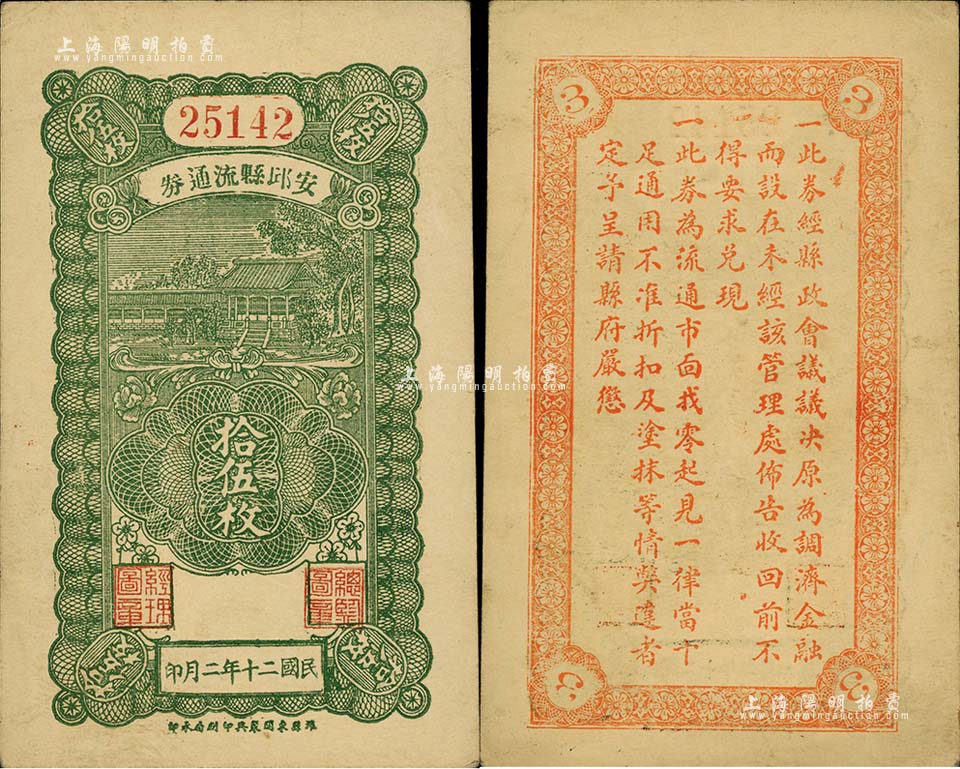 上海陽明拍賣
www.yangmingauction.com
拾五枚
拾五枚
25142
安邱縣流通券
拾伍枚
總理圖章
經理圖章
民國二十年二月印
上海陽明拍賣
www.yangmingauction.com
3
3
一此券經縣政會議議決原為調濟金融
而設在未經該管理處佈告收回前不
得要求兌現
一此券為流通市面找零起見一律當十
足通用不准折扣及塗抹等情與違者
定予呈請縣府嚴懲
3
3
上海陽明拍賣
www.yangmingauction.com